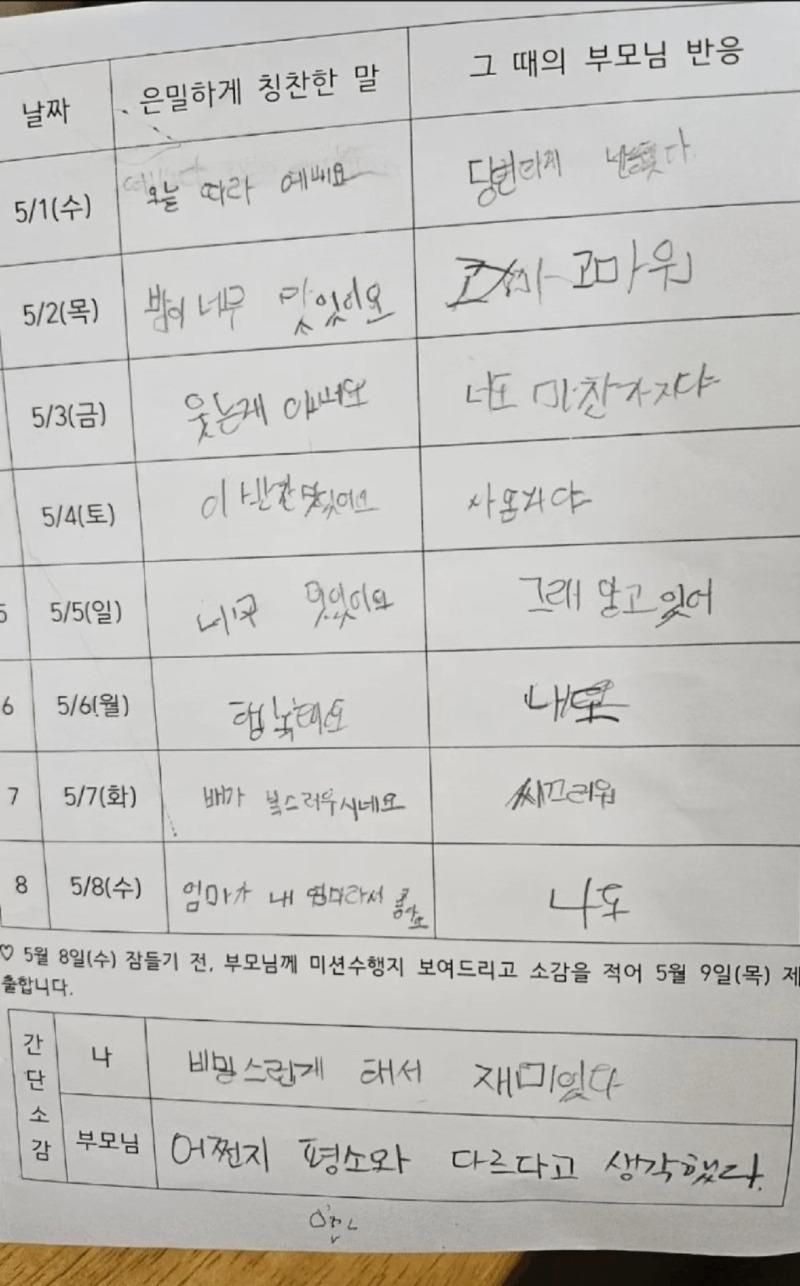 날짜 은밀하게 칭찬한 말 그 때의 부모님 반응
5/1(수) 오늘 따라 예뻐요
5/2(목) 밥이 너무 맛있어요 고마워
5/3(금) 웃는게 너도 마찬가지야
5/4(토) 이 반찬 맛있어요
5 5/5(일) 맛있어요 그래 알고 있어
6 5/6(월) 행복해요
7 5/7(화) 배가 복스러우시네요 씨끄러워
8 5/8(수) 엄마가 내 엄마라서 좋아요 나도
♡ 5월 8일(수) 잠들기 전, 부모님께 미션수행지 보여드리고 소감을 적어 5월 9일(목) 제
출합니다.
간단소감
나 비밀스런게 해서 재미있다
부모님 어쩐지 평소와 다르다고 생각했다.